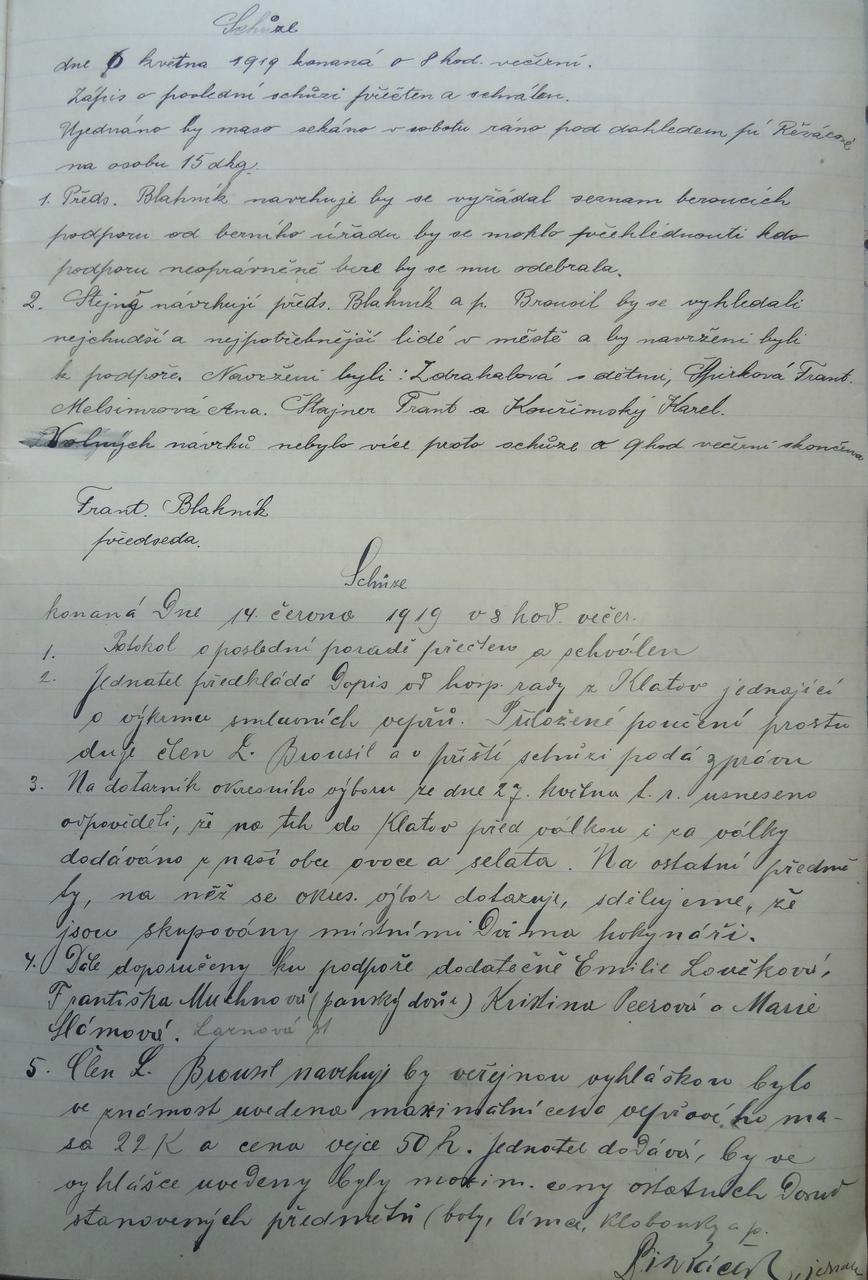 Schůze
dne 6 května 1919 konaná o 8 hod. večerní.
Zápis o poslední schůzi přečten a schválen.
Ujednáno by maso sekáno v sobotu ráno pod dahledem pí
na osobu 15 dkg.
1. Předs. Blahník navrhuje by se vyžádal seznam beroucích
podporu od berního úřadu by se mohlo přehlédnouti kdo
podporu neoprávněně bere by se mu odebrala.
2. Stejně návrhují předs. Blahník a p. Brousil by se vyhledali
nejchudší a nejpotřebnější lidé v městě a by navrženi byli
k podpoře. Navrženi byli: Zdrahalová s dětmi, Špirková Frant.
Melsimrová Ana. Štajner Frant a Kouřimský Karel.
Volných návrhů nebylo více proto schůze o 9 hod večerní skončena
Frant. Blahník
předseda.
Schůze
konaná Dne 14. června 1919 v 8 hod. večer.
1. Potokol o poslední poradě přečten a schválen
2. Jednatel předkládá Dopis od hosp. rady z Klatov jednající
o výkrmu smluvních vepřů. Přiložené poučení prostu
duje člen L. Brousil a v příští schůzi podá zprávu
3. Na dotazník okresního výboru ze dne 27. května t. r. usneseno
odpověděti, že na trh do Klatov před válkou i za války
dodáváno z naší obce ovoce a selata. Na ostatní předmě-
ty, na něž se okres. výbor dotazuje, sdělujeme, že
jsou skupovány místními Dvěma hokynáři.
4. Dále doporučeny ku podpoře dodatečně Emilie Loučková,
Františka Muchnová (panský dvůr) Kristina Peerová a Marie
Slámová.
5. Člen L. Brousil navrhuje by veřejnou vyhláškou bylo
ve známost uvedena maximální cena vepřového ma-
sa 22 K a cena vejce 50 h. Jednatel dodává, by ve
vyhlášce uvedeny byly maxim. ceny ostatních Dosud
stanovených předmětů (boty, límce, klobouky a p.